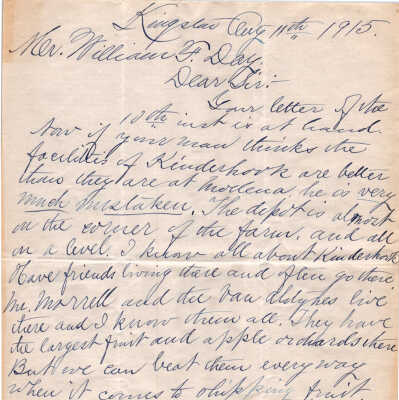 Kingston Aug 11th 1915.
Mr. William F. Day.
Dear Sir:-
Your letter of the
10th inst is at hand.
Now if your man thinks the
facilities of Kinderhook are better
than they are at Modena he is very
much mistaken. The depot is almost
on the corner of the farm. and all
on a level. I know all about Kinderhook
Have friends living there and often go there
Mr. Morrell and the Van Alstynes live
there and I know them all. They have
the largest fruit and apple orchards there
But we can beat them every way
when it comes to shipping fruit